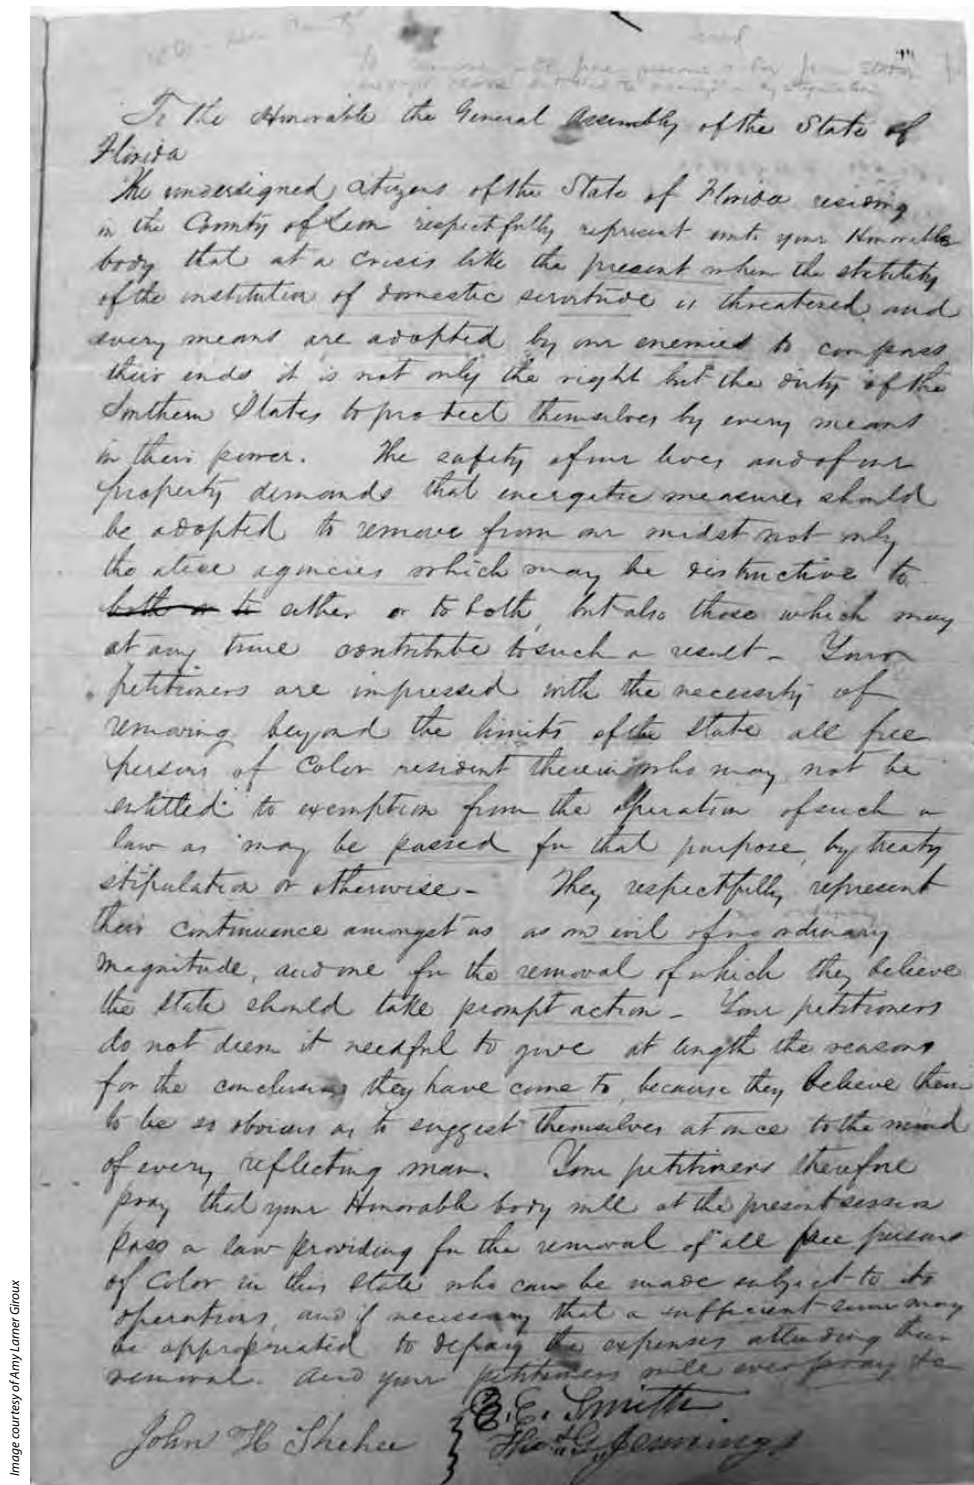 To the Honorable the General Assembly of the State of
Florida
The undersigned Citizens of the State of Florida residing
in the County of Leon respectfully represent unto your Honorable
body that at a crisis like the present when the stability
of the institution of domestic servitude is threatened and
every means are adopted by our enemies to compass
their ends it is not only the right but the duty of the
Southern States to protect themselves by every means
in their power. The safety of our lives and of our
property demands that energetic measures should
be adopted to remove from our midst not only
the ative agencies which may be distructive to
both or to either or to both, but also those which may
at any time contribute to such a result - Your
petitioners are impressed with the necessity of
removing beyond the limits of the State all free
persons of Color resident therein who may not be
entitled to exemption from the operation of such a
law as may be passed for that purpose, by treaty
stipulation or otherwise - They respectfully represent
their continuence amongst us as an evil of no ordinary
magnitude, and one for the removal of which they believe
the State should take prompt action - Your petitioners
do not deem it needful to give at length the reasons
for the conclusions they have come to, because they believe them
to be so obvious as to suggest themselves at once to the mind
of every reflecting man. Your petitioners therefore
pray that your Honorable body will at the present session
pass a law providing for the removal of all free persons
of Color in this State who can be made subject to its
operations, and if necessary that a sufficient sum may
be appropriated to defray the expenses attending their
removal. And your petitioners will ever pray &c
E. Smith
John H Shehee
Thos G Jennings
Image courtesy of Amy Larner Giroux